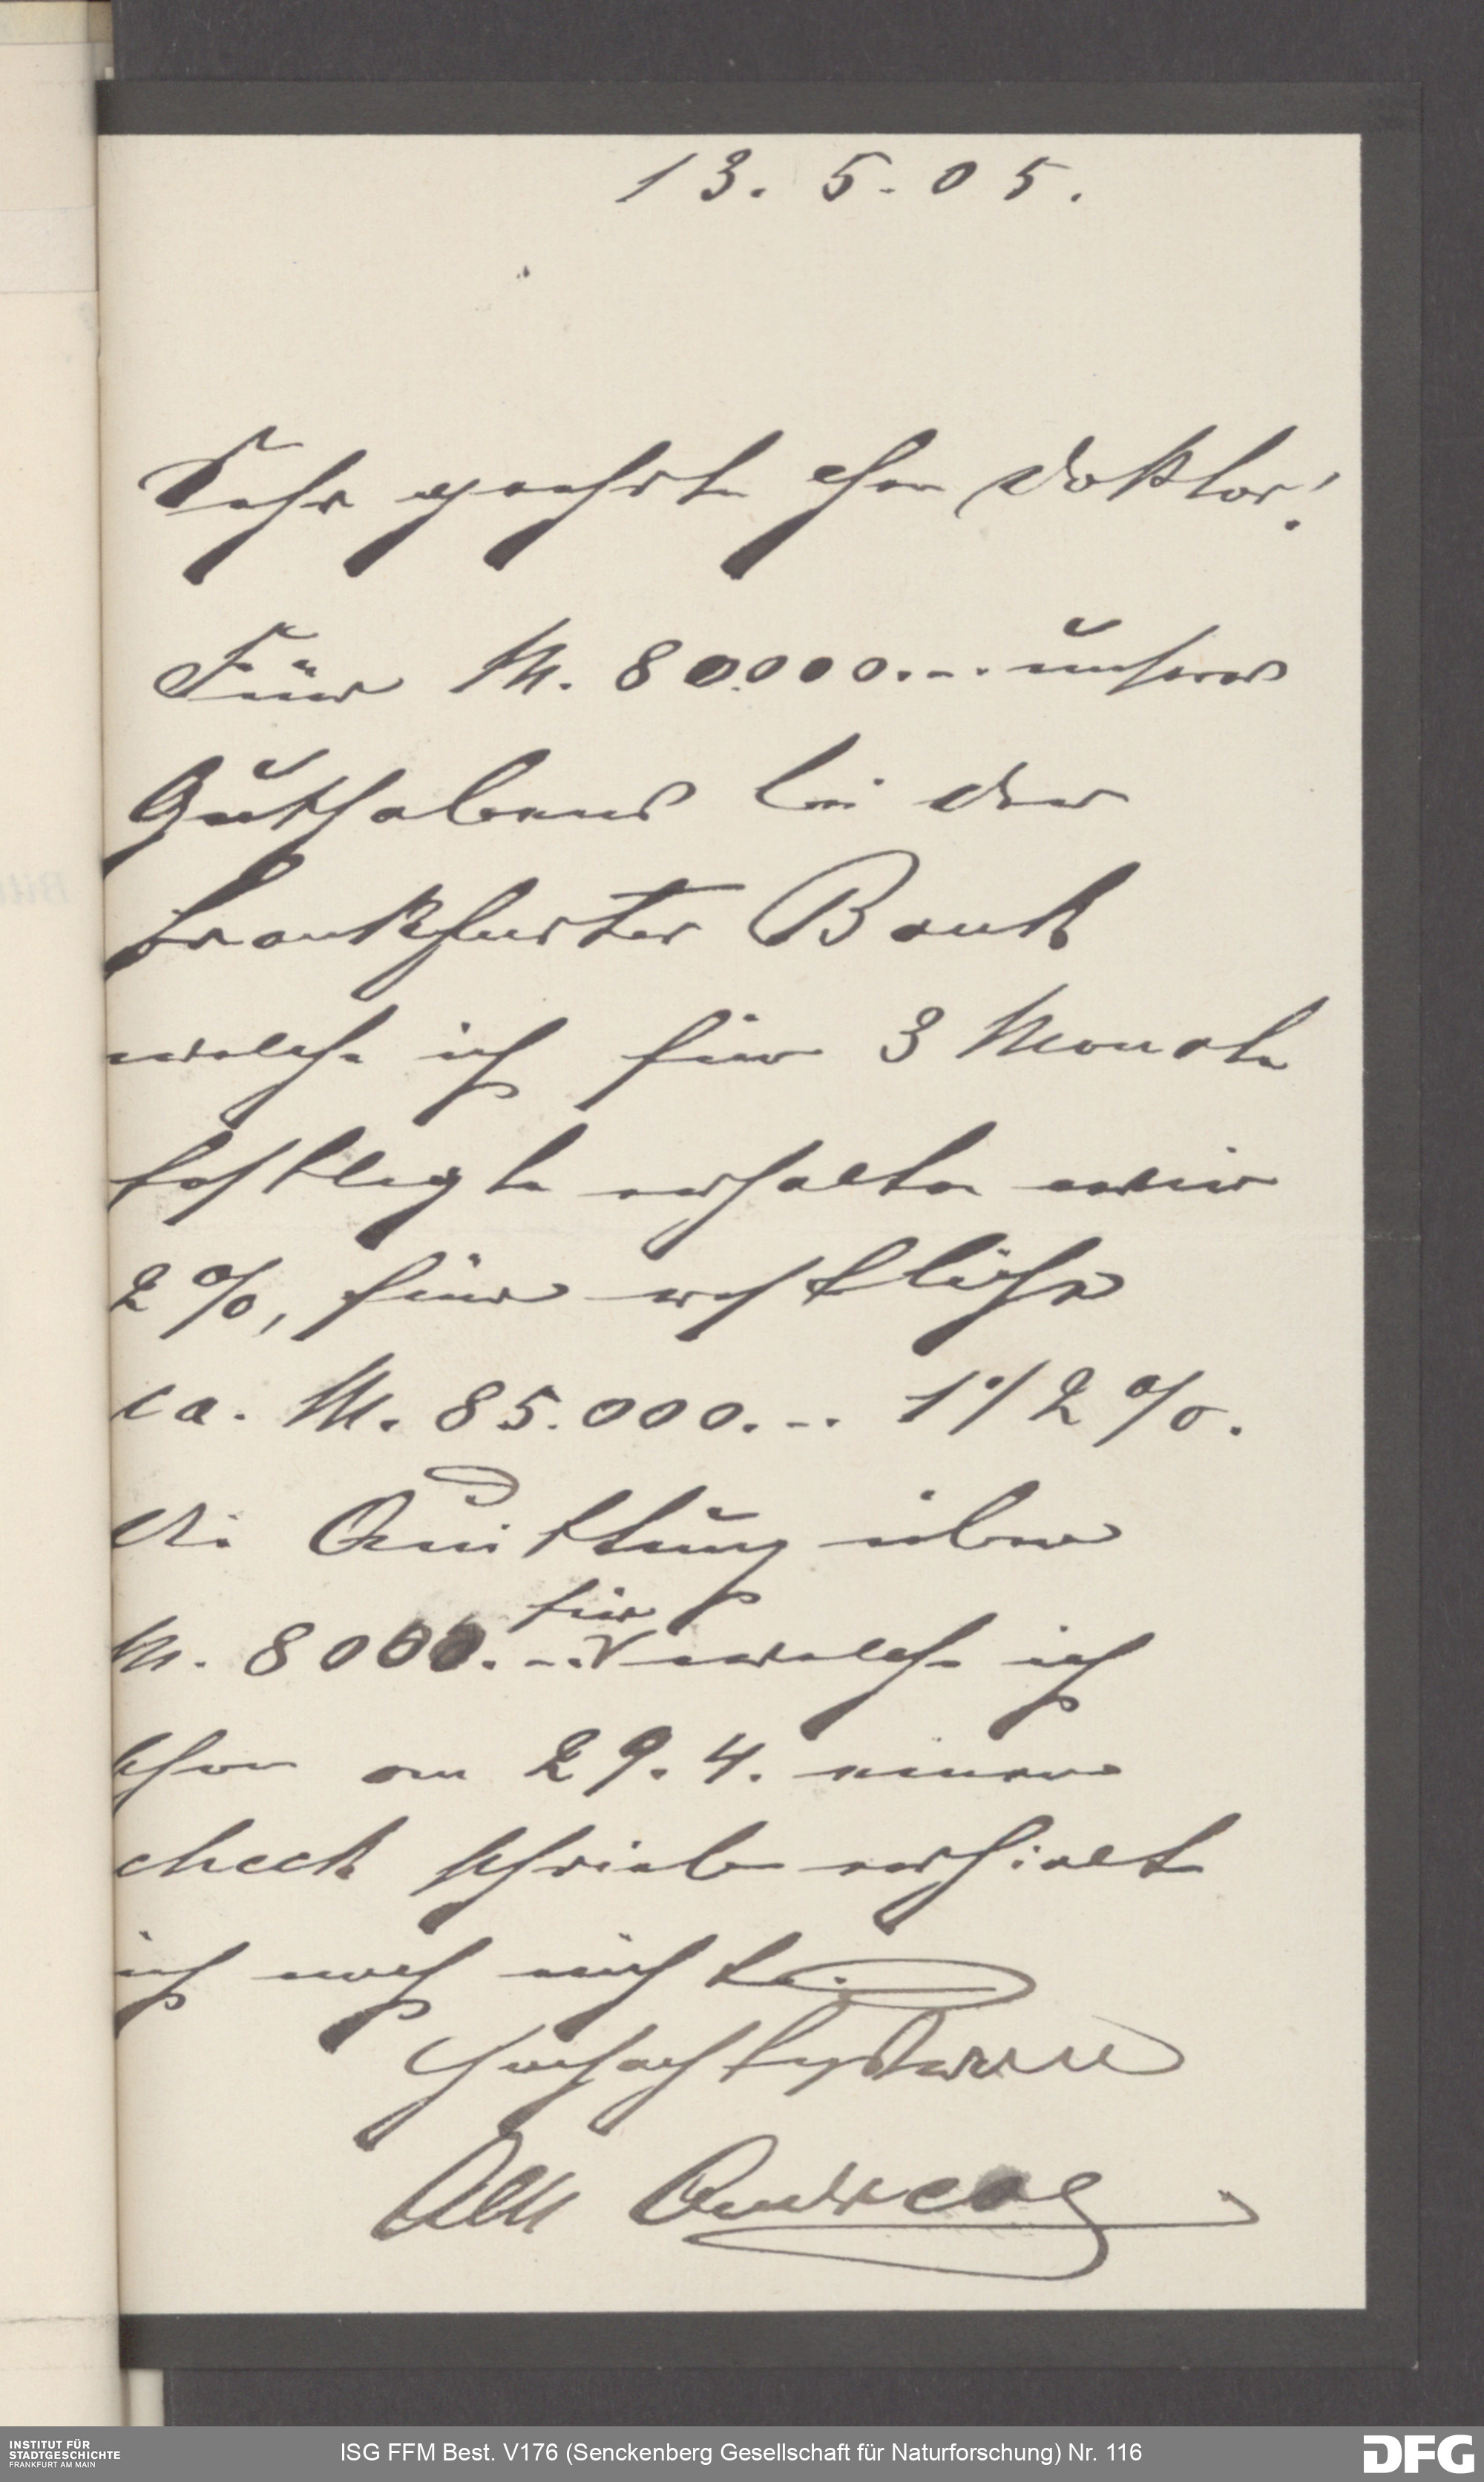 13. 5. 05.
Sehr geehrter Herr Doktor!
Für M. 80.000.-. unseres
Guthabens bei der
Frankfurter Bank
welche ich für 3 Monate
festlegte erhalten wir
2%, für restliche
ca. M. 85.000.-. 1 1/2 %.
Die Quittung über
M. 8000.-. für welche ich
schon am 29. 4. einen
check schrieb erhielt
ich noch nicht.
Hochachtungsvoll
Andreae
INSTITUT FÜR
STADTGESCHICHTE
FRANKFURT AM MAIN
ISG FFM Best. V176 (Senckenberg Gesellschaft für Naturforschung) Nr. 116
DFG